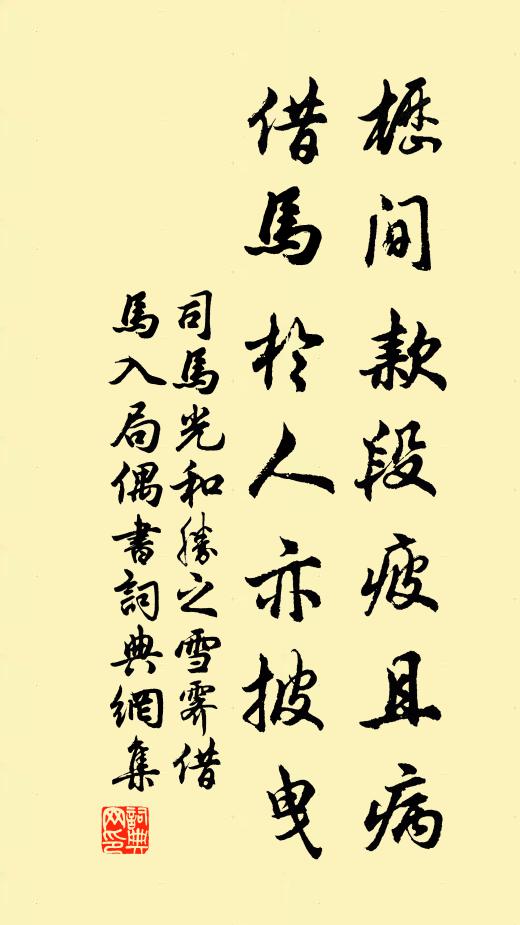 櫪間款段疲且病
借馬於人亦披曳
司馬光和勝之雪霽借
馬入局偶書詞典網集
詞典
网印